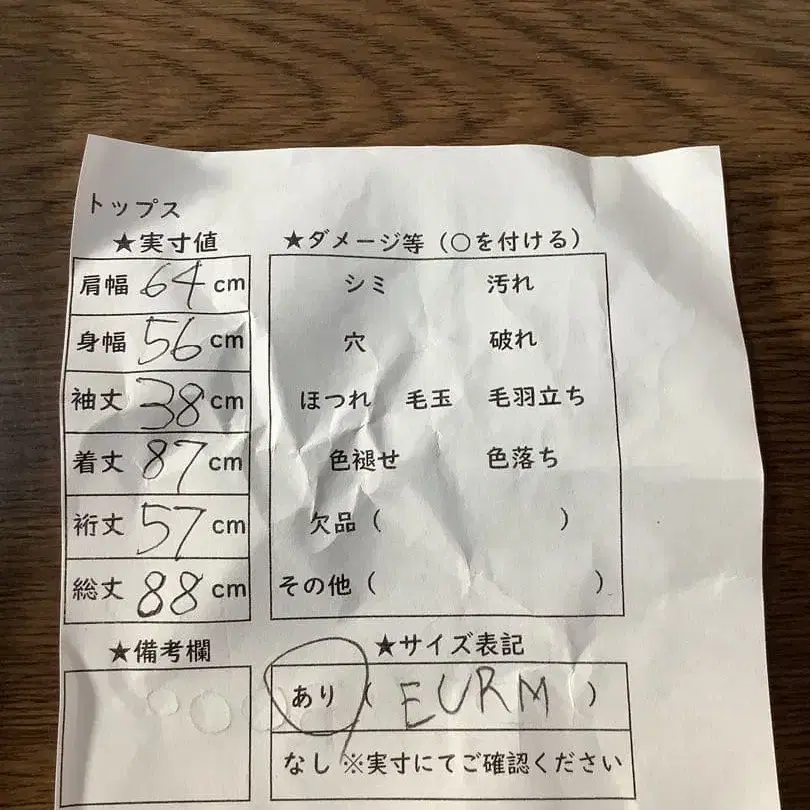 トップス
★実寸値
肩幅 64 cm
身幅 56 cm
袖丈 38 cm
着丈 87 cm
裄丈 57 cm
総丈 88 cm
★備考欄
★ダメージ等（○を付ける）
シミ 汚れ
穴 破れ
ほつれ 毛玉 毛羽立ち
色褪せ 色落ち
欠品（ ）
その他（ ）
★サイズ表記
あり（ EURM ）
なし ※実寸にてご確認ください